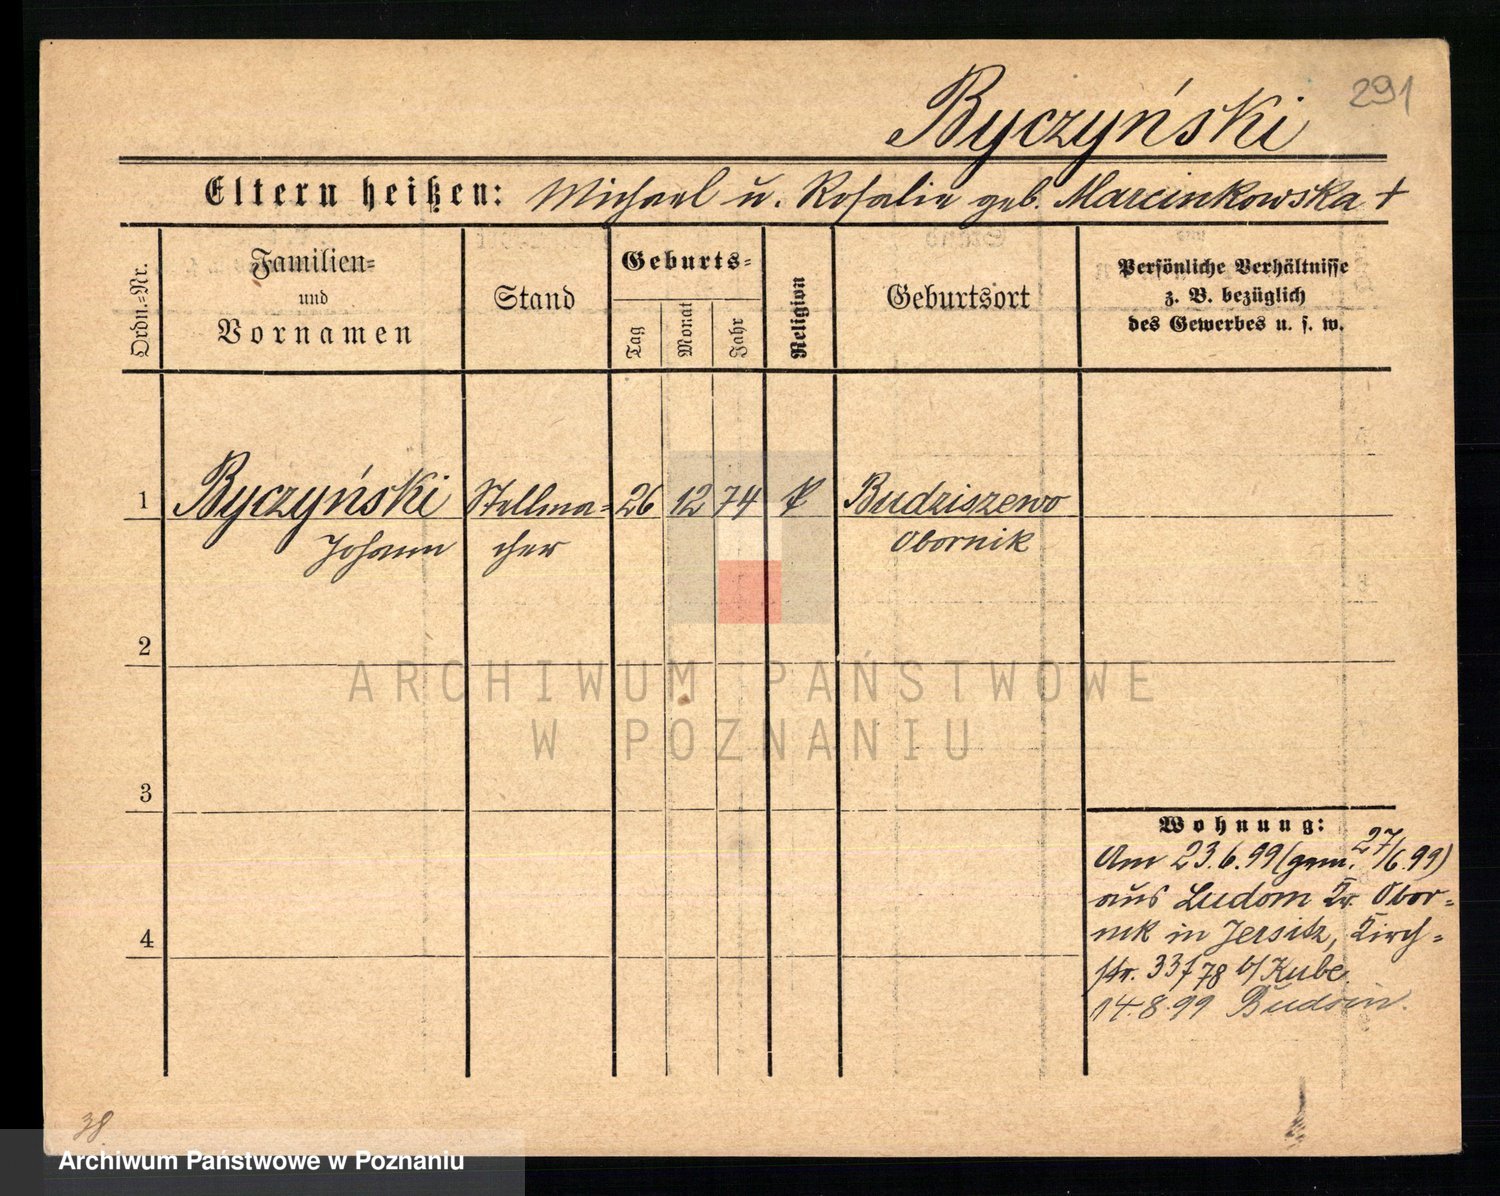 291
Byczyński
Eltern heißen: Michael u. Rosalie geb. Marcinkowska +
Ordn.=Nr.
Familien=
und
Vornamen
Stand
Geburts=
Tag
Monat
Jahr
Religion
Geburtsort
Persönliche Verhältnisse
z. B. bezüglich
des Gewerbes u. s. w.
1 Byczyński Stellma= 26 12 74 Budziszewo
Johann cher Obornik
2
3
4
Wohnung:
Am 23.6.99 (gem. 27/6.99)
aus Ludom Kr. Obor=
nik in Jersitz, Kirch=
str. 33/78 b/ Kube
14.8.99 Budsin.
38
ARCHIWUM PAŃSTWOWE
W POZNANIU
Archiwum Państwowe w Poznaniu